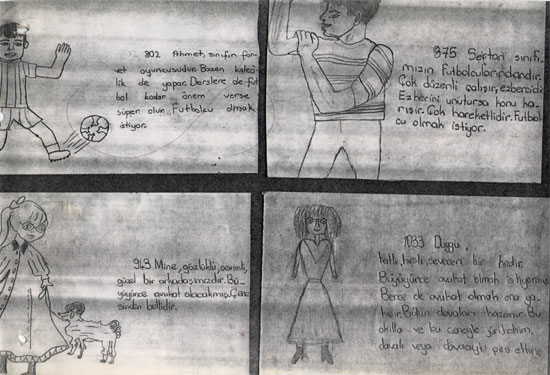 802 Ahmet, sınıfın for-
vet oyuncusudur. Bazen kaleci-
lik de yapar. Derslere de fut
bol kadar önem verse
süper olur.. Futbolcu olmak
istiyor.
875 Sertan sınıfı-
mızın futbolcularındandır.
Çok düzenli çalışır, ezbercidir.
Ezberini unutursa konu ka-
rışır. Çok hareketlidir. Futbol
cu olmak istiyor.
943 Mine, gözlüklü, sevimli,
güzel bir arkadaşımızdır. Bü-
yüyünce avukat olacakmış. Çene
sinden bellidir.
1033 Duygu,
tatlı, hırslı, sevecen bir kızdır.
Büyüyünce avukat olmak istiyormuş
Bence de avukat olmak ona ya-
kışır. Bütün davaları kazanır. Bu
akılla ve bu çeneyle
davalı veya davacıyı pes ettirir